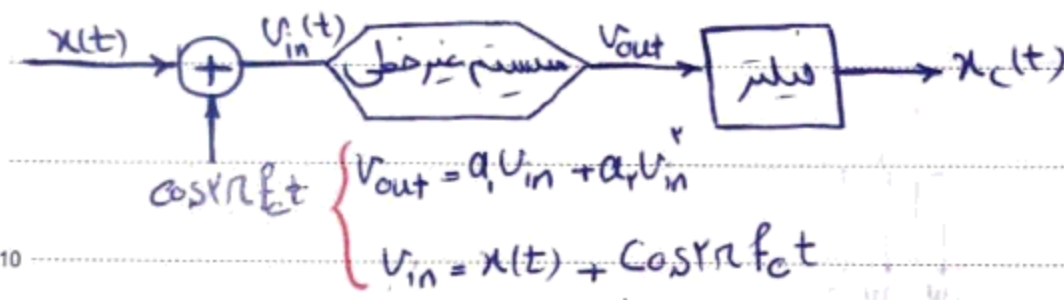 x(t) + V_in(t) سیستم غیر خطی V_out فیلتر x_c(t)
cos۲πf_ct
V_out = a_۱ V_in + a_۲ V_in^۲
V_in = x(t) + cos۲πf_c t
10